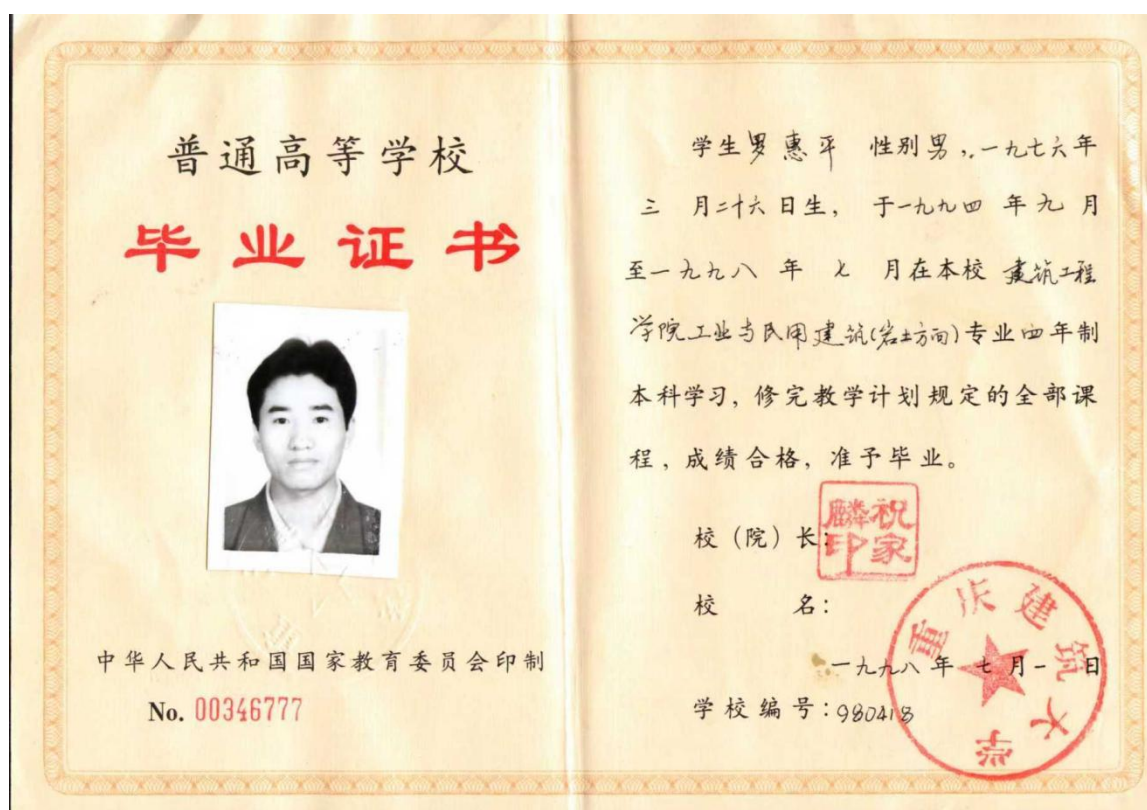 普通高等学校
毕业证书
中华人民共和国国家教育委员会印制
No. 00346777
学生罗惠平 性别男，一九七六年
三 月二十六日生， 于一九九四 年九 月
至一九九八 年 七 月在本校 建筑工程
学院工业与民用建筑(岩土方面)专业四年制
本科学习，修完教学计划规定的全部课
程，成绩合格，准予毕业。
校（院）长：
祝家麟印
校 名：
重庆建筑大学
一九九八年 七 月 一 日
学校编号：980418